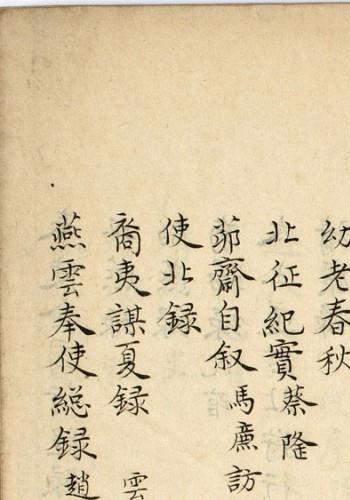 幼老春秋
北征紀實 蔡
茆齋自叙 馬
使北録
裔夷謀夏録
燕雲奉使総録 趙